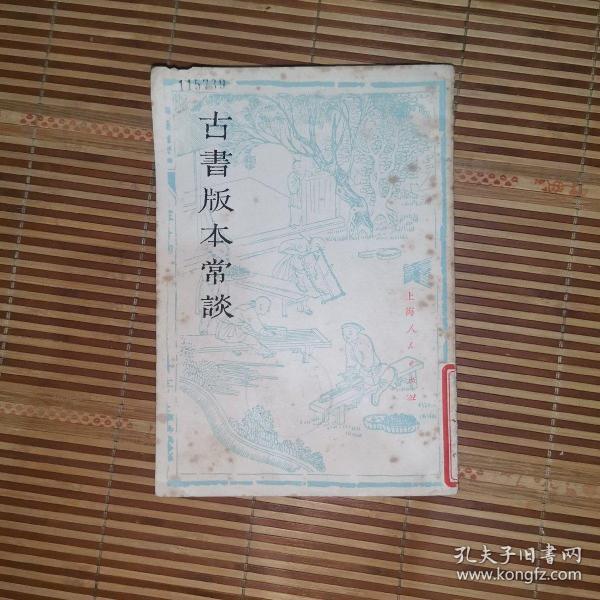 115739
古書版本常談
上海人民出版社
孔夫子旧書网
www.kongfz.com